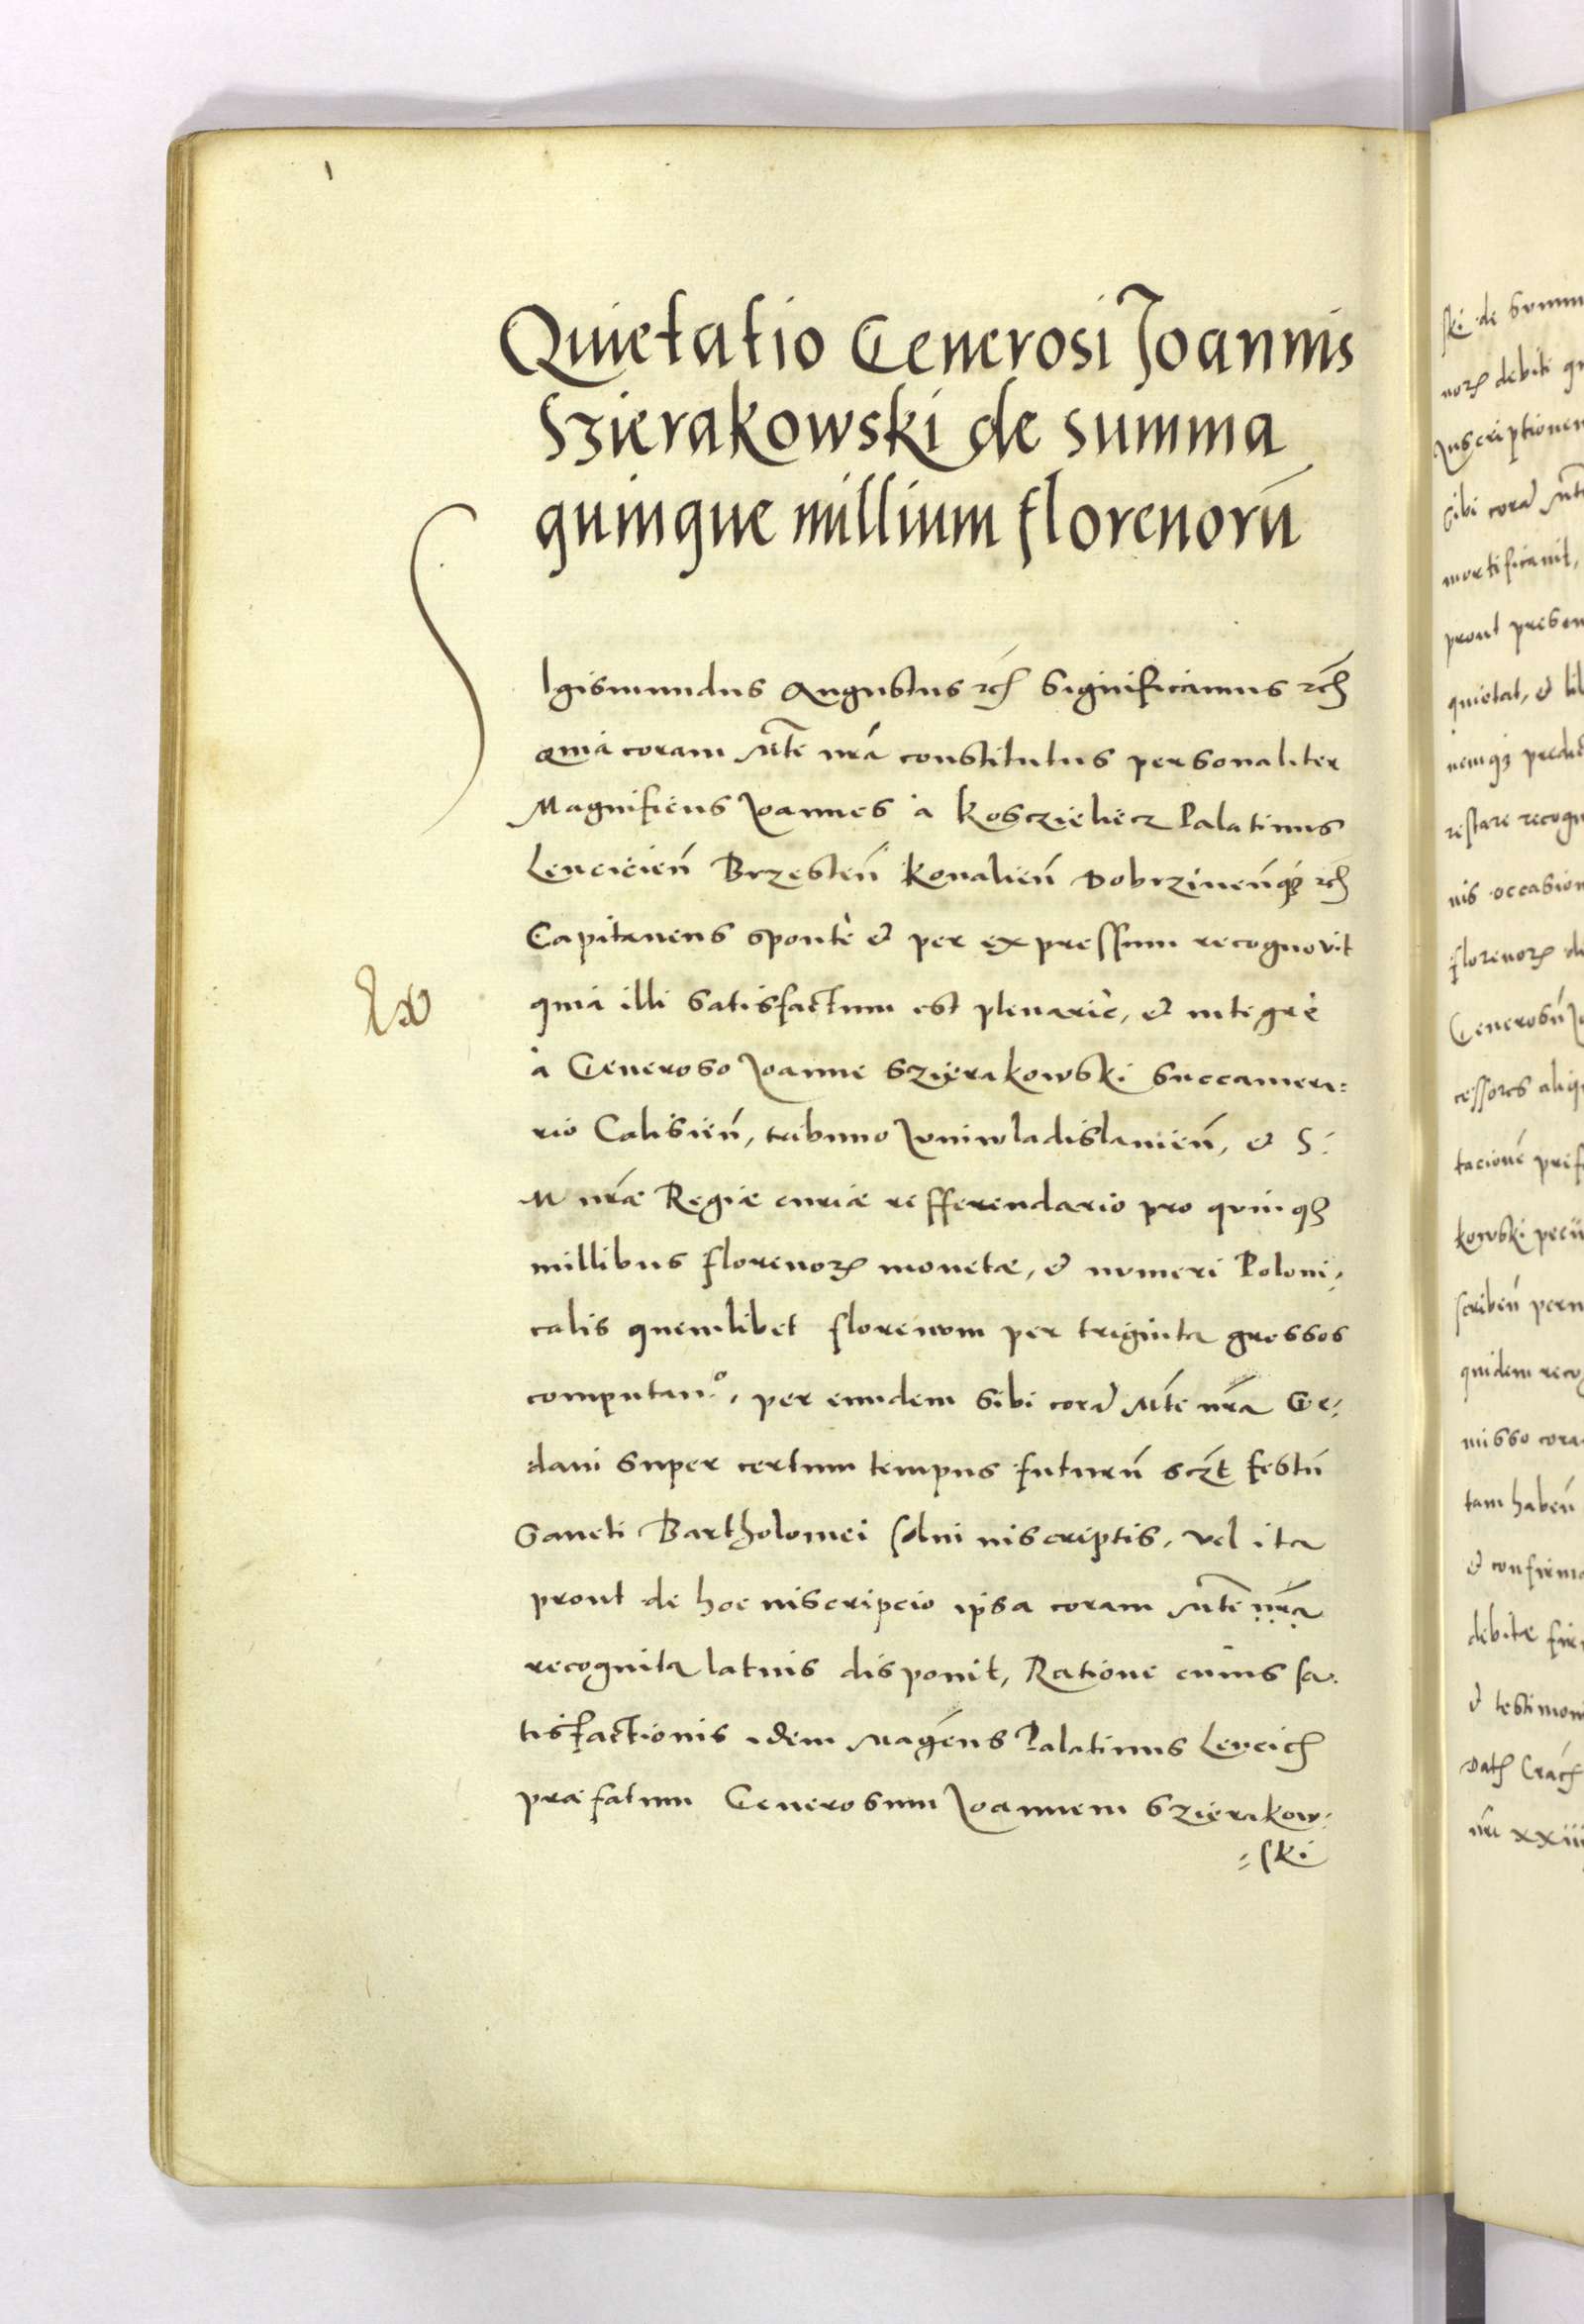 Quietatio Generosi Joannis
Szierakowski de summa
quinque millium florenorū
SIgismundus Augustus etc̄ Significamus etc̄
Quia coram Mte nrā constitutus personaliter
Magnificus Joannes à Kosczieliecz Palatinus
Lenciciēn Brzestēn Konaliēn Dobrzinēnq3 etc̄
Capitaneus sponte et per expressum recognovit
quia illi satisfactum est plenariè, et integrè
à Generoso Joanne Szierakowski Succamera:
rio Calisiēn, tribuno Juniwladislauiēn, et S:
M nrae Regiae curiae refferendario pro quinq3
millibus florenor monetae, et numeri Poloni,
calis quemlibet florenum per triginta grossos
computan°, per eundem sibi corā Mte nrā Ge,
dani super certum tempus futurū sczt festū
Sancti Bartholomei solui inscriptis, vel ita
prout de hoc inscripcio ipsa coram Mte nrā
recognita latius disponit, Ratione cuius sa.
tisfactionis idem Magcus Palatinus Lencic̄
praefatum Generosum Joannem Szierakow:
=ski
ski de summ
nor debiti
Inscriptionem
sibi corā Mte
mortificauit,
prout presen
quietat, et
nemq3 predic
restare recogn
nis occasion
florenor
Generosū
cessores aliq
tacionē pref
kowski
scribēn
quidem reco
misso cora
tam habēn
et confirma
debitae
et testimon
Dat Crac̄
nri xxiii